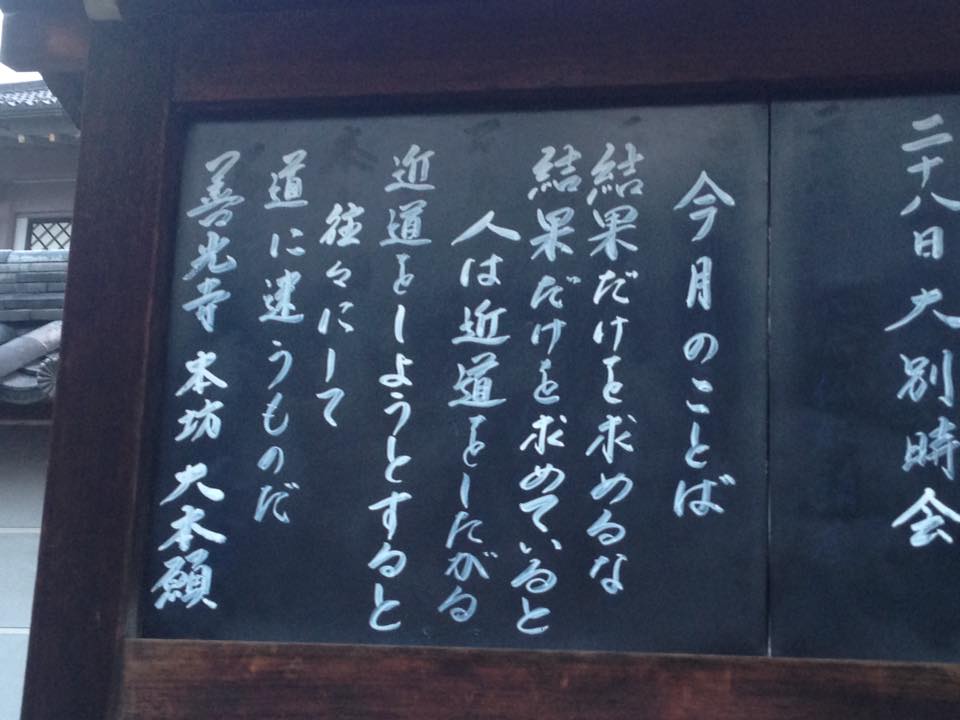 二十八日大別時会
今月のことば
結果だけを求めるな
結果だけを求めていると
人は近道をしたがる
近道をしようとすると
往々にして
道に迷うものだ
善光寺 本坊 大本願